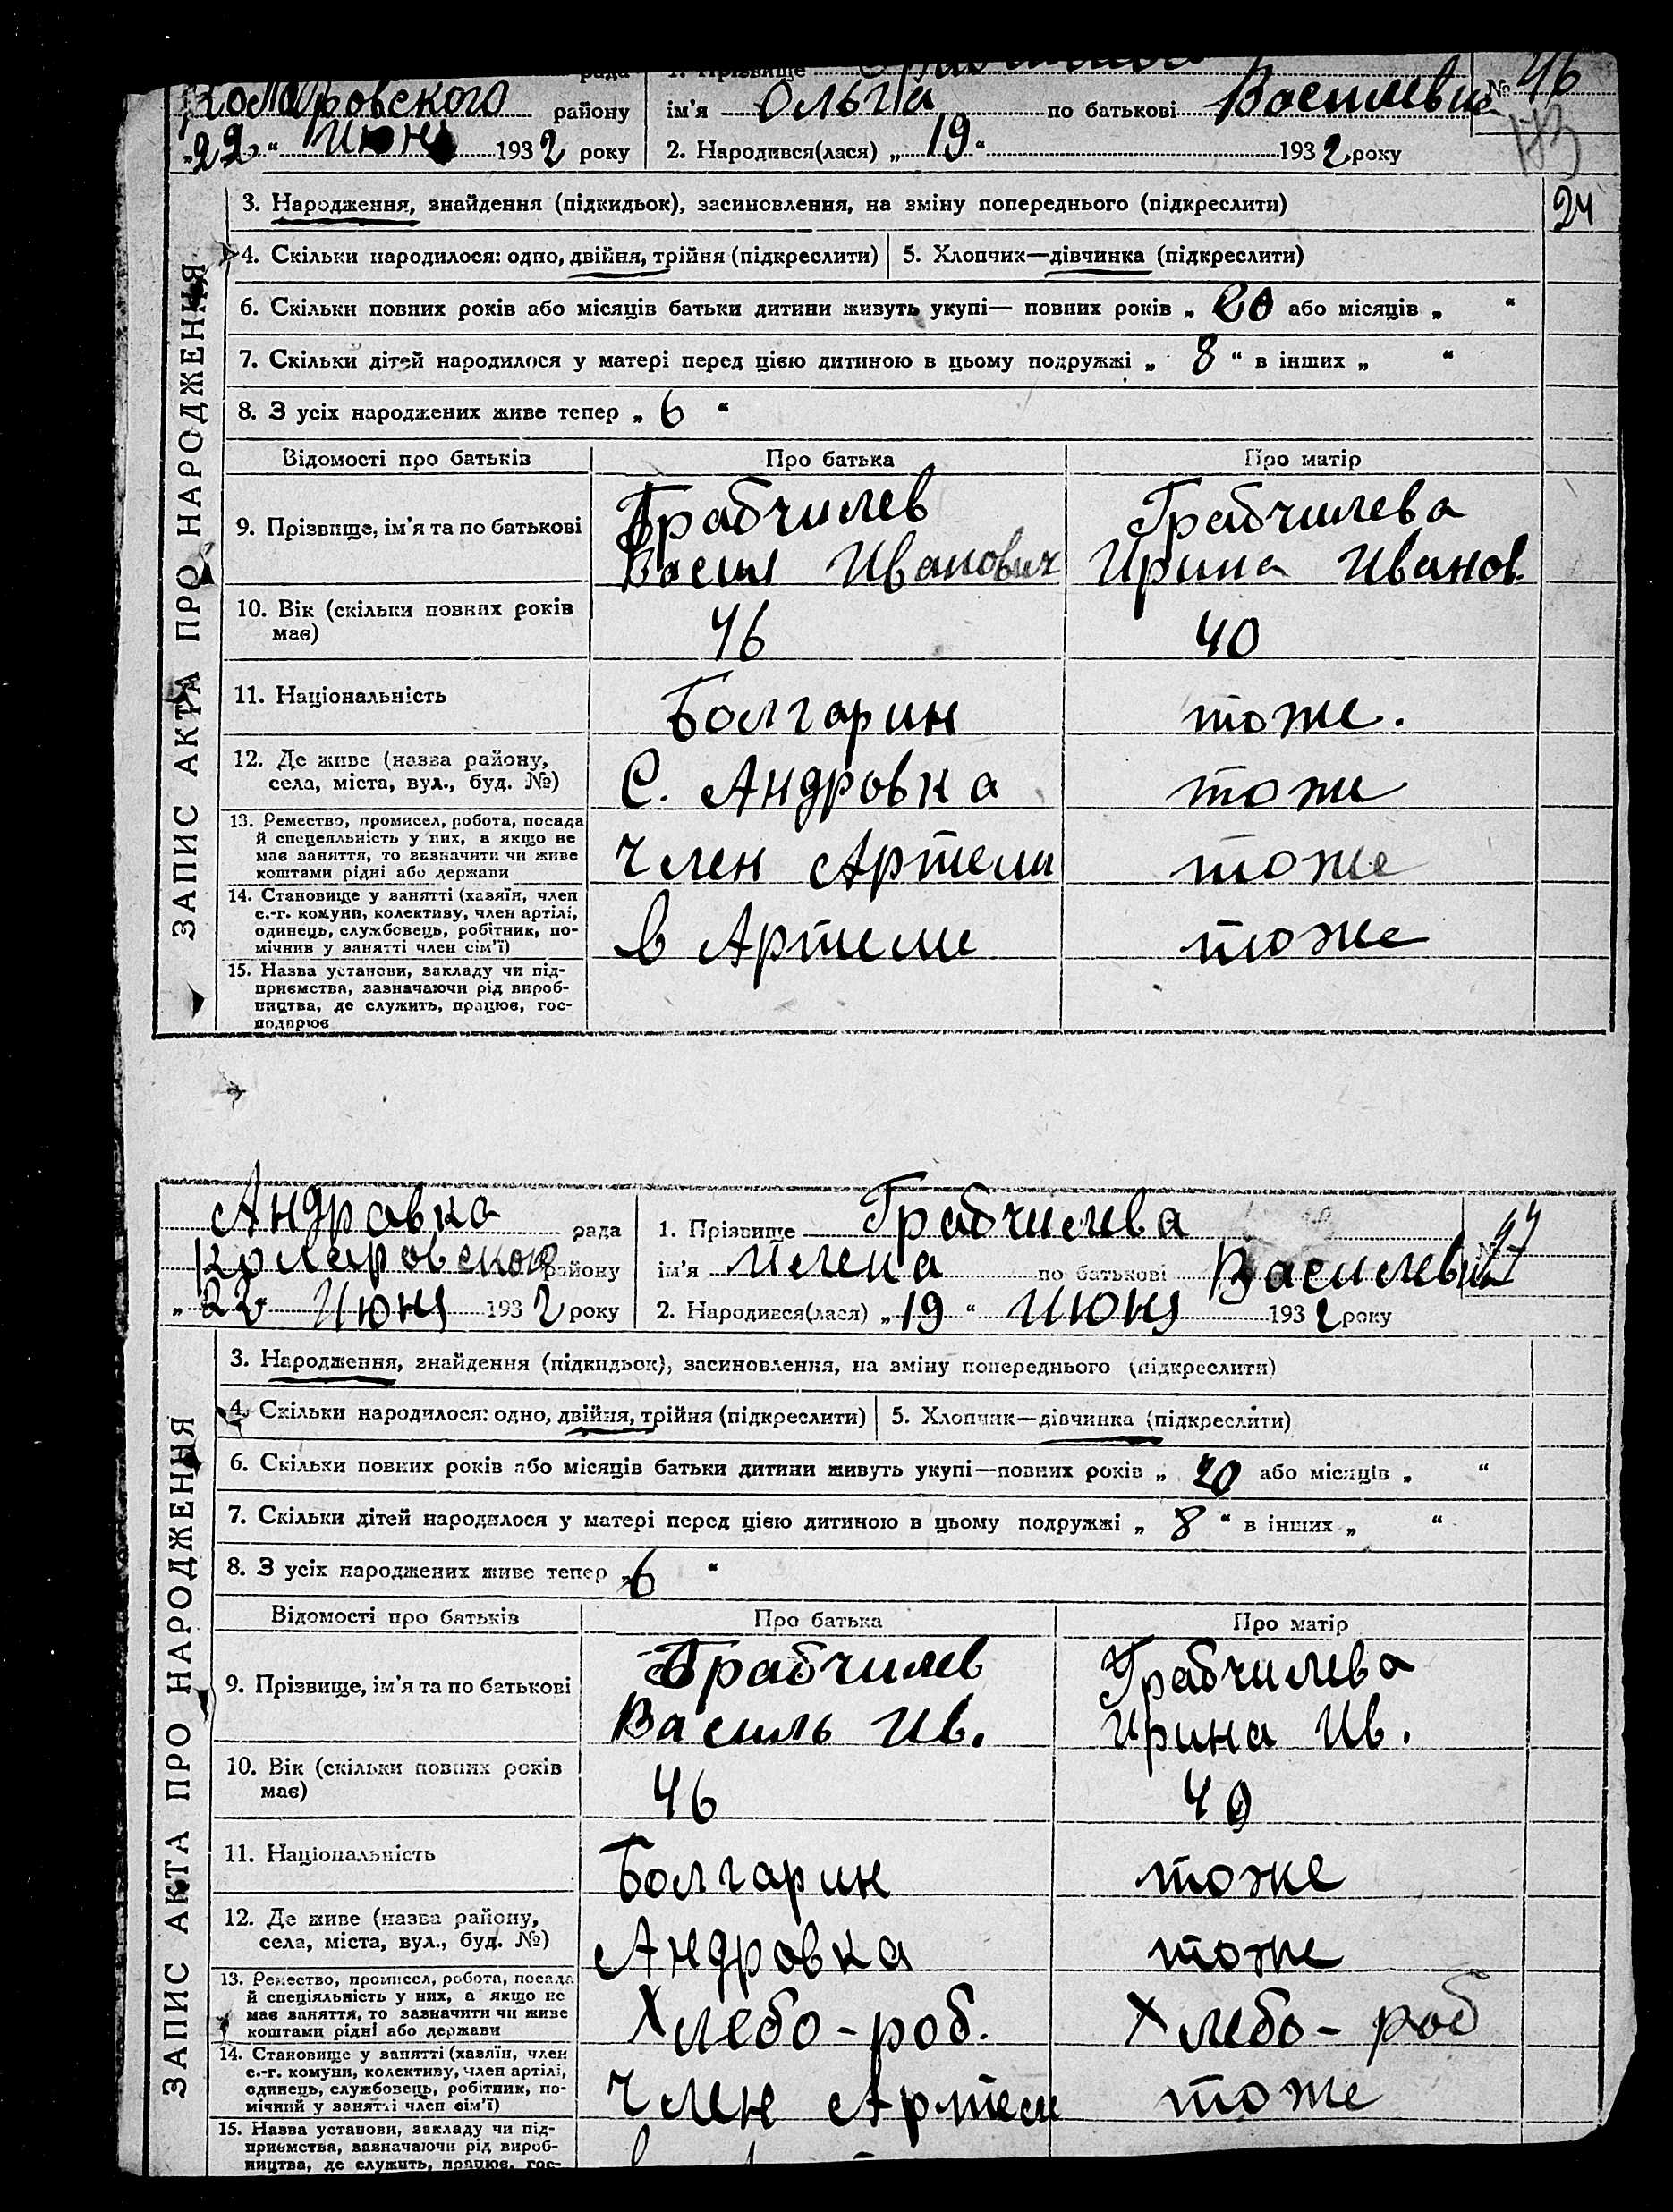 рада 1. Прізвище
Коларовского району ім'я Ольга по батькові Василевна № 46
„22“ Июня 1932 року 2. Народився(лася) „19“ 1932 року
3. Народження, знайдення (підкидьок), засиновлення, на зміну попереднього (підкреслити) 24
4. Скільки народилося: одно, двійня, трійня (підкреслити) 5. Хлопчик—дівчинка (підкреслити)
6. Скільки повних років або місяців батьки дитини живуть укупі— повних років „ 20 або місяців „ “
7. Скільки дітей народилося у матері перед цією дитиною в цьому подружжі „ 8 “ в інших „ “
8. З усіх народжених живе тепер „ 6 “
Відомості про батьків Про батька Про матір
9. Прізвище, ім'я та по батькові Грабчилев Грабчилева
Васил Иванович Ирина Иванов.
10. Вік (скільки повних років 46 40
має)
11. Національність Болгарин тоже.
12. Де живе (назва району,
села, міста, вул., буд. №) С. Андровка тоже
13. Ремество, промисел, робота, посада
й спецеяльність у них, а якщо не
має заняття, то зазначити чи живе
коштами рідні або держави Член Артели тоже
14. Становище у занятті (хазяїн, член
с.-г. комуни, колективу, член артілі,
одинець, службовець, робітник, по-
мічнив у занятті член сім'ї) в Артели тоже
15. Назва установи, закладу чи під-
приємства, зазначаючи рід вироб-
ництва, де служить, працює, гос-
подарює
ЗАПИС АКТА ПРО НАРОДЖЕННЯ
Андравка рада 1. Прізвище Грабчилева
Коларовского району ім'я Млена по батькові Василевна № 47
„22“ Июня 1932 року 2. Народився(лася) „19“ Июня 1932 року
3. Народження, знайдення (підкидьок), засиновлення, на зміну попереднього (підкреслити)
4. Скільки народилося: одно, двійня, трійня (підкреслити) 5. Хлопчик—дівчинка (підкреслити)
6. Скільки повних років або місяців батьки дитини живуть укупі—повних років „ 20 або місяців „ “
7. Скільки дітей народилося у матері перед цією дитиною в цьому подружжі „ 8 “ в інших „ “
8. З усіх народжених живе тепер „6 “
Відомості про батьків Про батька Про матір
9. Прізвище, ім'я та по батькові Грабчилев Грабчилева
Василь Ив. Ирина Ив.
10. Вік (скільки повних років 46 40
має)
11. Національність Болгарин тоже
12. Де живе (назва району,
села, міста, вул., буд. №) Андровка тоже
13. Ремество, промисел, робота, посада
й спеціяльність у них, а якщо не
має заняття, то зазначити чи живе
коштами рідні або держави Хлебо-роб. Хлебо-роб
14. Становище у занятті (хазяїн, член
с.-г. комуни, колективу, член артілі,
одинець, службовець, робітник, по-
мічний у занятті член сім'ї) Член Артели тоже
15. Назва установи, закладу чи під-
приємства, зазначаючи рід вироб-
ництва, де служить, працює, гос-
ЗАПИС АКТА ПРО НАРОДЖЕННЯ